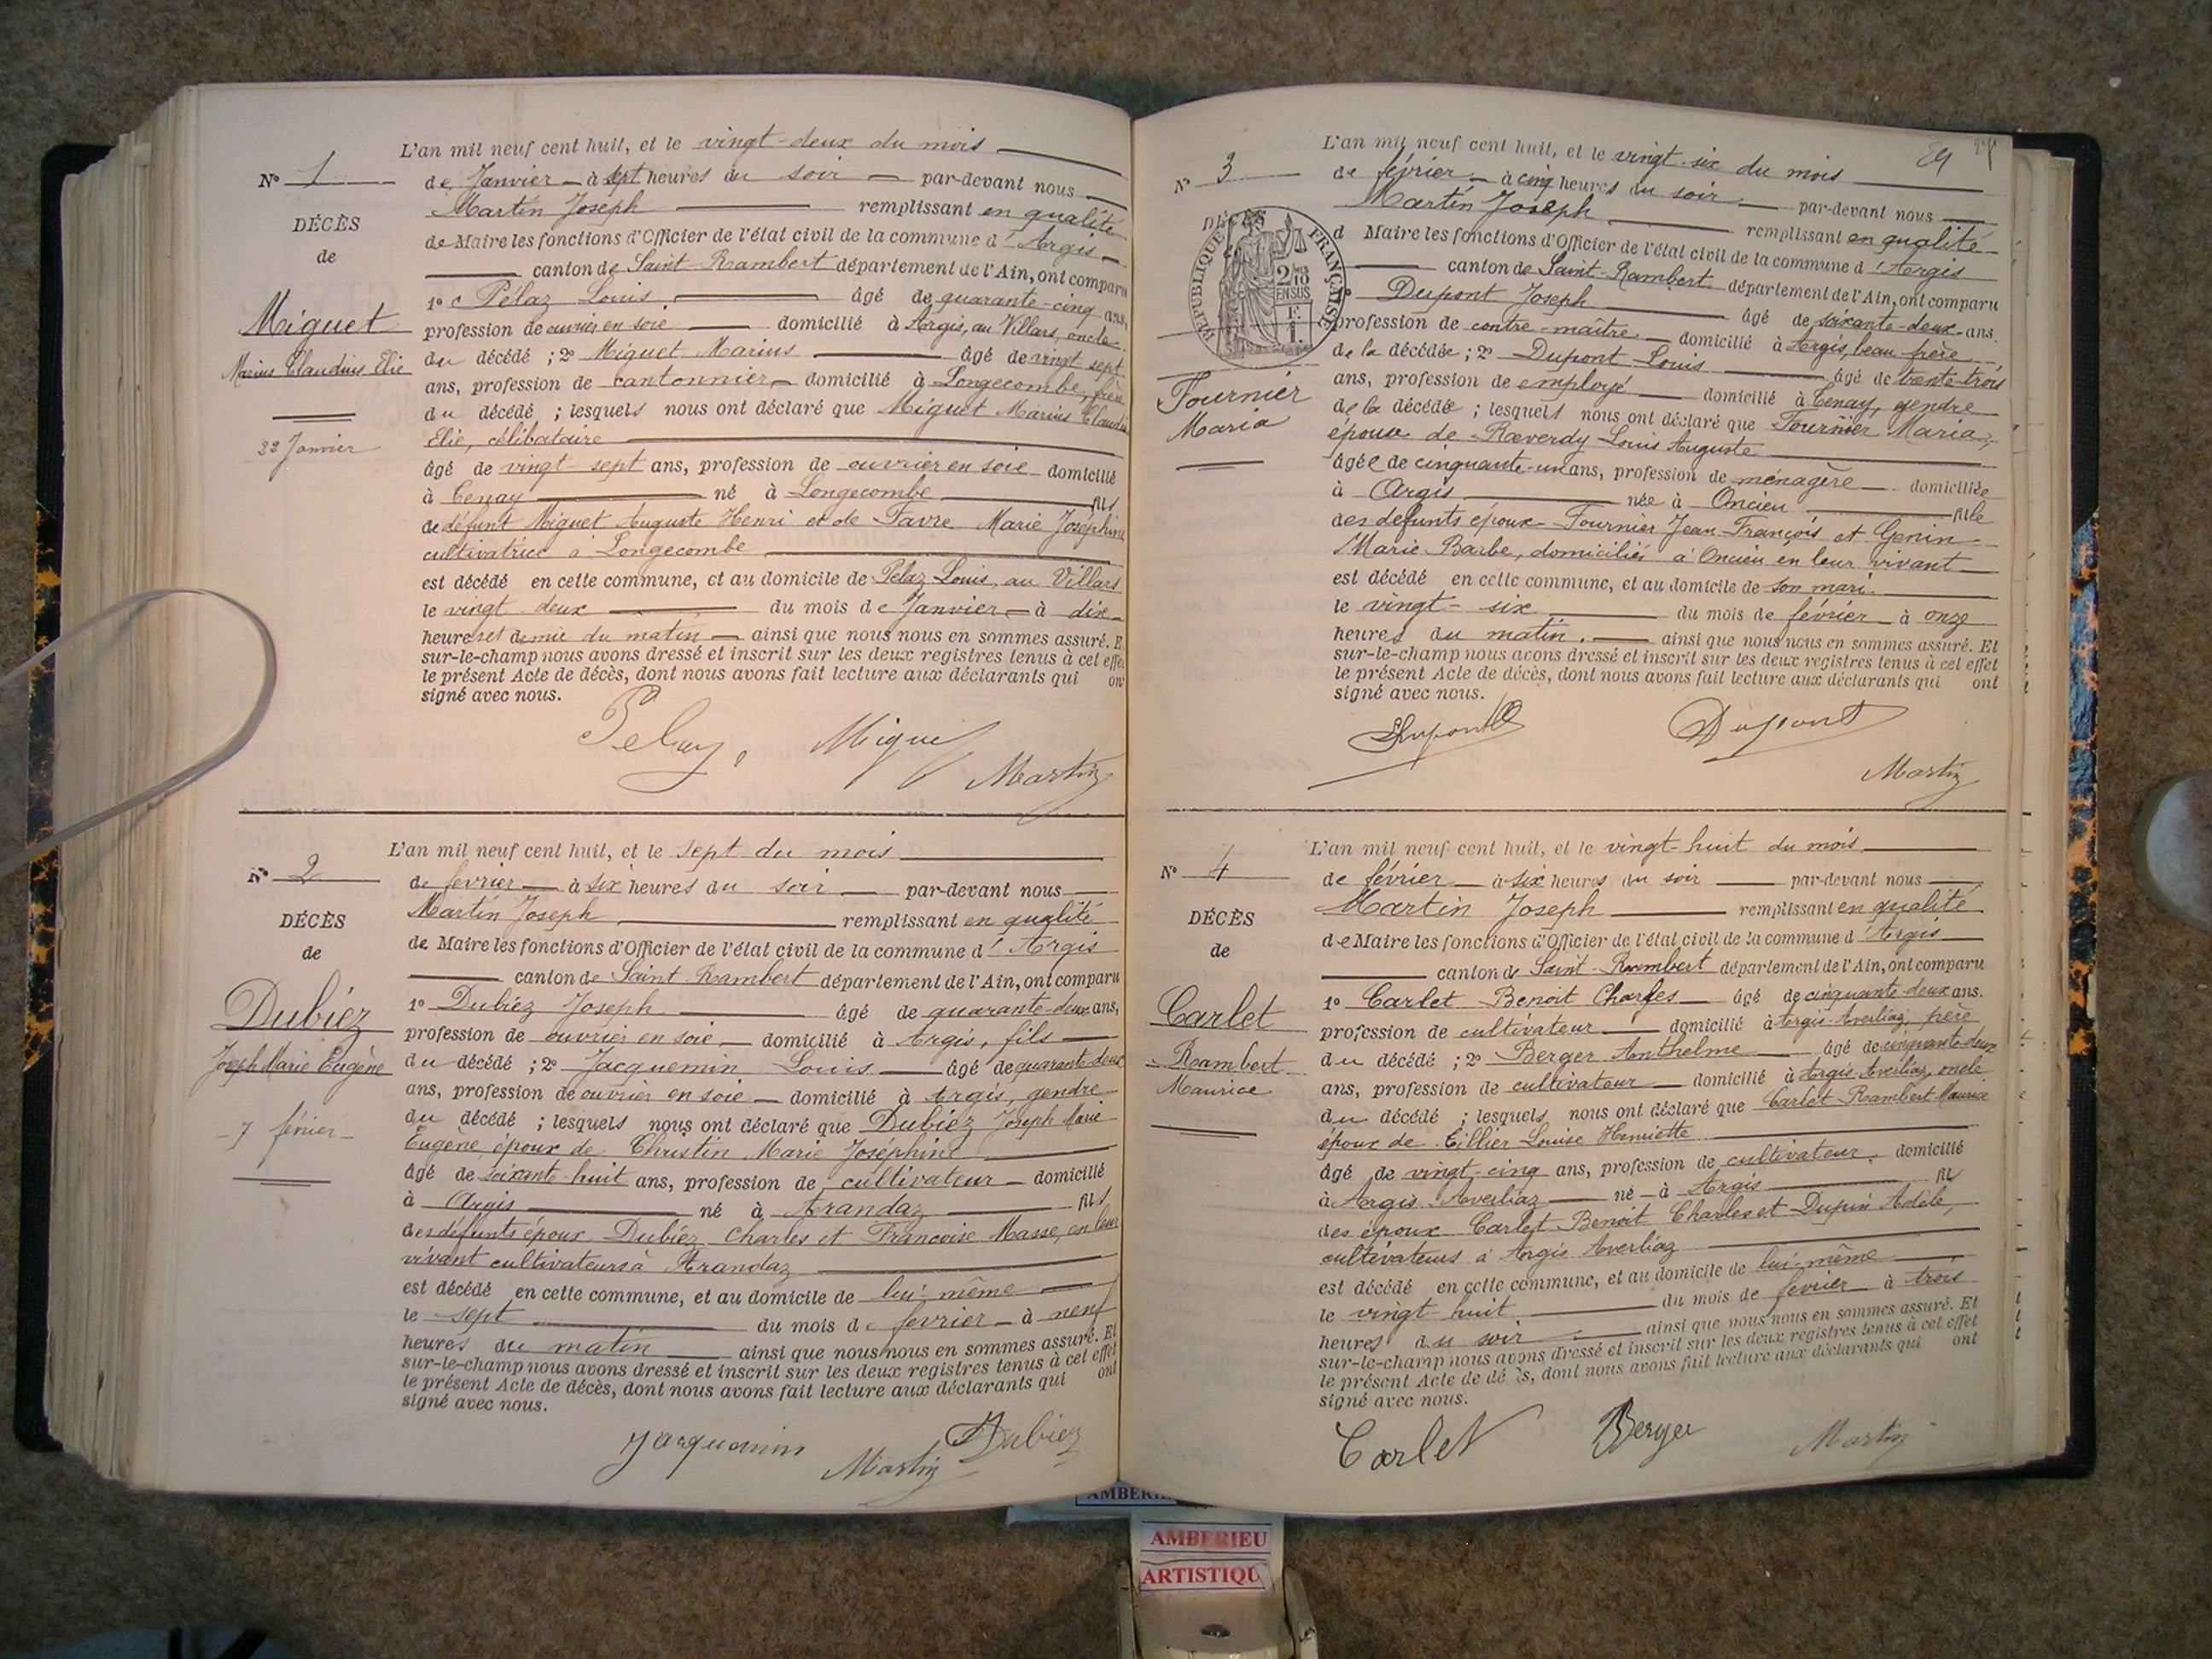 L'an mil neuf cent huit, et le vingt-deux du mois
N° 1
de Janvier à sept heures du soir par-devant nous
Martin Joseph remplissant en qualité
DÉCÈS
de Maire les fonctions d'Officier de l'état civil de la commune d'Argis
de
canton de Saint-Rambert département de l'Ain, ont comparu
1° Pélaz Louis âgé de quarante-cinq ans,
Miguet
profession de ouvrier en soie domicilié à Argis, au Villars, oncle
Marius Claudius Elie
du décédé ; 2° Miguet Marius âgé de vingt sept
ans, profession de cantonnier domicilié à Longecombe, frère
du décédé ; lesquels nous ont déclaré que Miguet Marius Claudius
22 Janvier
Elie, célibataire
âgé de vingt-sept ans, profession de ouvrier en soie domicilié
à Tenay né à Longecombe fils
de défunt Miguet Auguste Henri et de Favre Marie Joséphine
cultivatrice à Longecombe
est décédé en cette commune, et au domicile de Pelaz Louis, au Villars
le vingt deux du mois de Janvier à dix
heures et demie du matin ainsi que nous nous en sommes assuré. E
sur-le-champ nous avons dressé et inscrit sur les deux registres tenus à cet effet
le présent Acte de décès, dont nous avons fait lecture aux déclarants qui on
signé avec nous.
Miguet
Martin
L'an mil neuf cent huit, et le sept du mois
N° 2
de fevrier à six heures du soir par-devant nous
Martin Joseph remplissant en qualité
DÉCÈS
de Maire les fonctions d'Officier de l'état civil de la commune d'Argis
de
canton de Saint-Rambert département de l'Ain, ont comparu
1° Dubiez Joseph âgé de quarante-deux ans,
Dubiéz
profession de ouvrier en soie domicilié à Argis, fils
Joseph Marie Eugène
du décédé ; 2° Jacquemin Louis âgé de quarante-deux
ans, profession de ouvrier en soie domicilié à Argis, gendre
7 février
du décédé ; lesquels nous ont déclaré que Dubiéz Joseph Marie
Eugène, époux de Christin Marie Joséphine
âgé de soixante-huit ans, profession de cultivateur domicilié
à Argis né à Arandaz fils
des défunts époux Dubiéz Charles et Francoise Masse, en leur
vivant cultivateurs à Arandaz
est décédé en cette commune, et au domicile de lui-même
le sept du mois de fevrier à neuf
heures du matin ainsi que nous nous en sommes assuré. Et
sur-le-champ nous avons dressé et inscrit sur les deux registres tenus à cet effet
le présent Acte de décès, dont nous avons fait lecture aux déclarants qui ont
signé avec nous.
Jacquemin Martin Dubiez
L'an mil neuf cent huit, et le vingt-six du mois
N° 3
de février à cinq heures du soir par-devant nous
Martin Joseph remplissant en qualité
DÉCÈS
RÉPUBLIQUE FRANÇAISE
2/10 EN SUS
d Maire les fonctions d'Officier de l'état civil de la commune d'Argis
canton de Saint-Rambert département de l'Ain, ont comparu
Dupont Joseph âgé de soixante-deux ans.
profession de contre-maître domicilié à Argis, beau-frère
de la décédée ; 2° Dupont Louis âgé de trente-trois
Fournier
ans, profession de employé domicilié à Tenay, gendre
Maria
de la décédée ; lesquels nous ont déclaré que Fournier Maria,
épouse de Raverdy Louis Auguste
âgée de cinquante-un ans, profession de ménagère domiciliée
à Argis née à Oncieu fille
des défunts époux Fournier Jean-François et Genin
Marie-Barbe, domiciliés à Oncieu en leur vivant
est décédé en cette commune, et au domicile de son mari
le vingt-six du mois de février à onze
heures du matin. ainsi que nous nous en sommes assuré. Et
sur-le-champ nous avons dressé et inscrit sur les deux registres tenus à cet effet
le présent Acte de décès, dont nous avons fait lecture aux déclarants qui ont
signé avec nous.
Dupont Dupont
Martin
L'an mil neuf cent huit, et le vingt-huit du mois
N° 4
de février à six heures du soir par-devant nous
Martin Joseph remplissant en qualité
DÉCÈS
de Maire les fonctions d'Officier de l'état civil de la commune d'Argis
de
canton de Saint-Rambert département de l'Ain, ont comparu
1° Carlet Benoit Charles âgé de cinquante-deux ans.
Carlet
profession de cultivateur domicilié à Argis-Averliaz, père
Rambert
du décédé ; 2° Berger Anthelme âgé de cinquante-deux
Maurice
ans, profession de cultivateur domicilié à Argis Averliaz, oncle
du décédé ; lesquels nous ont déclaré que Carlet Rambert-Maurice
époux de Tillier Louise Henriette
âgé de vingt-cinq ans, profession de cultivateur, domicilié
à Argis Averliaz né à Argis fils
des époux Carlet Benoit Charles et Dupin Adèle,
cultivateurs à Argis Averliaz
est décédé en cette commune, et au domicile de lui-même
le vingt-huit du mois de fevrier à trois
heures du soir ainsi que nous nous en sommes assuré. Et
sur-le-champ nous avons dressé et inscrit sur les deux registres tenus à cet effet
le présent Acte de dé ès, dont nous avons fait lecture aux déclarants qui ont
signé avec nous.
Carlet Berger Martin
AMBERIEU
ARTISTIQU